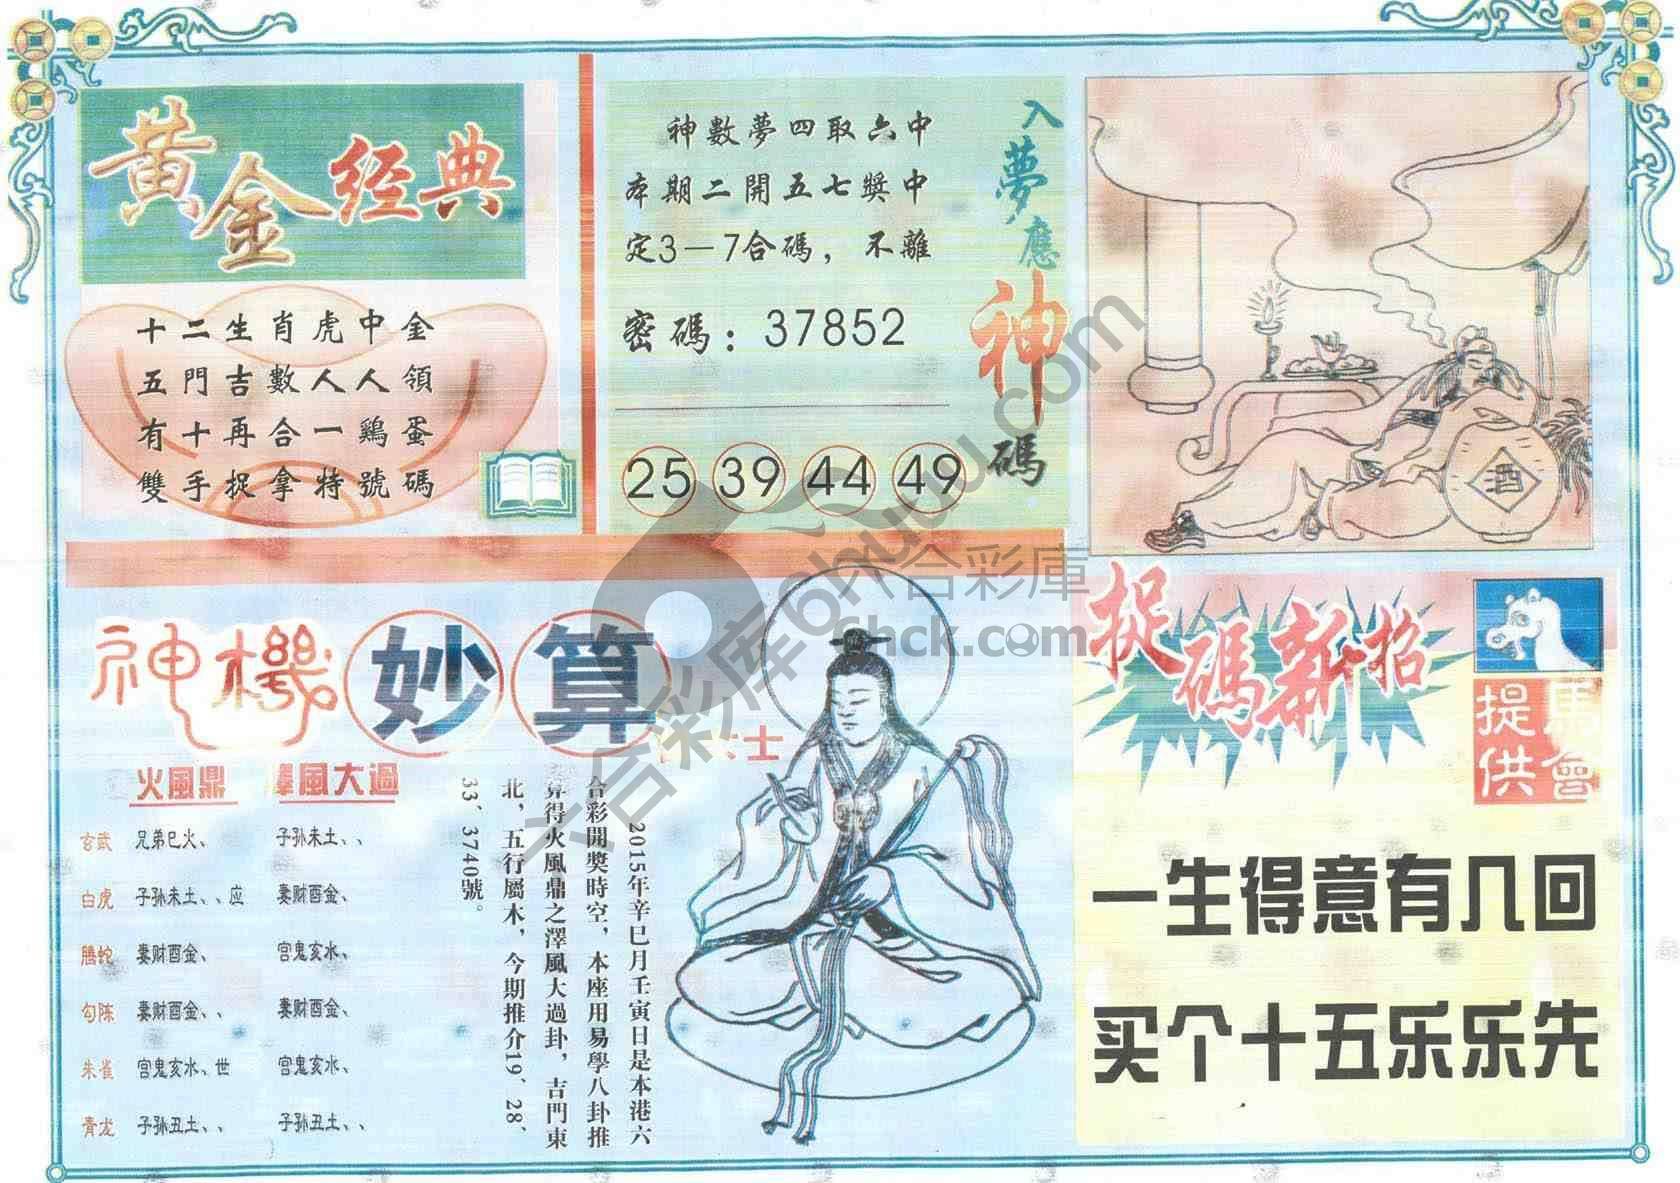 黄金经典
十二生肖虎中金
五門吉數人人領
有十再合一鷄蛋
雙手捉拿特號碼
入夢應神碼
神數夢四取六中
本期二開五七獎中
定3—7合碼，不離
密碼：37852
25 39 44 49
酒
神機妙算
士
火風鼎 風大過
玄武 兄弟巳火、 子孙未土、、
白虎 子孙未土、、应 妻财酉金、
腾蛇 妻财酉金、 官鬼亥水、
勾陈 妻财酉金、、 妻财酉金、
朱雀 官鬼亥水、世 官鬼亥水、
青龙 子孙丑土、、 子孙丑土、、
2015年辛巳月壬寅日是本港六
合彩開獎時空，本座用易學八卦推
算得火風鼎之澤風大過卦，吉門東
北，五行屬木，今期推介19、28、
33、3740號。
捉碼新招
馬會提供
一生得意有几回
买个十五乐乐先
六合彩库6hkuu.com
六合彩庫
6hck.com